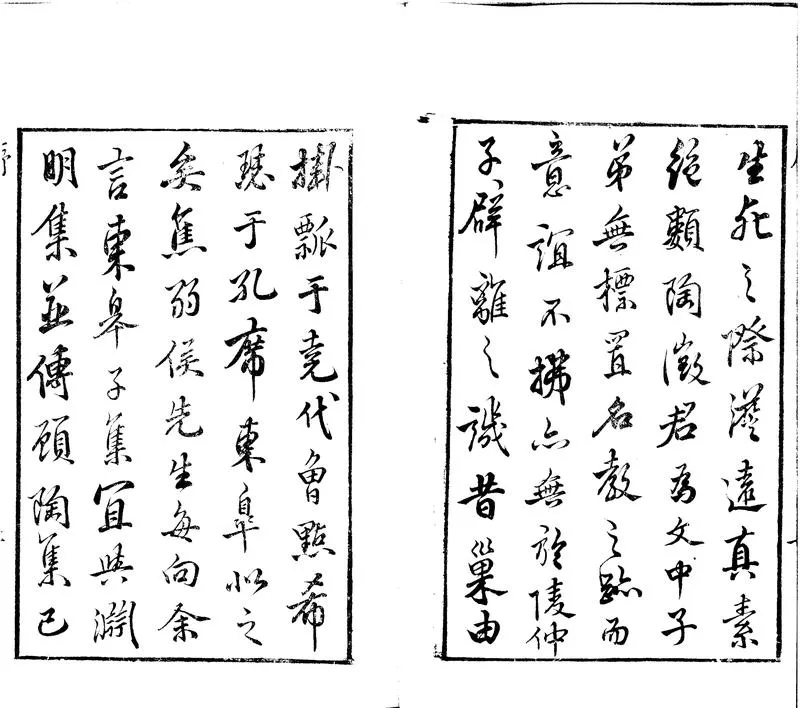 生死之際澹遠真素
絕類陶徵君為文中子
弟無標置名教之跡而
意誼不拂亦無於陵仲
子辟離之譏昔巢由
掛瓢于堯代曾點希
瑟于孔席東皋似之
矣焦弱侯先生每向余
言東皋子集宜與淵
明集並傳顧陶集已